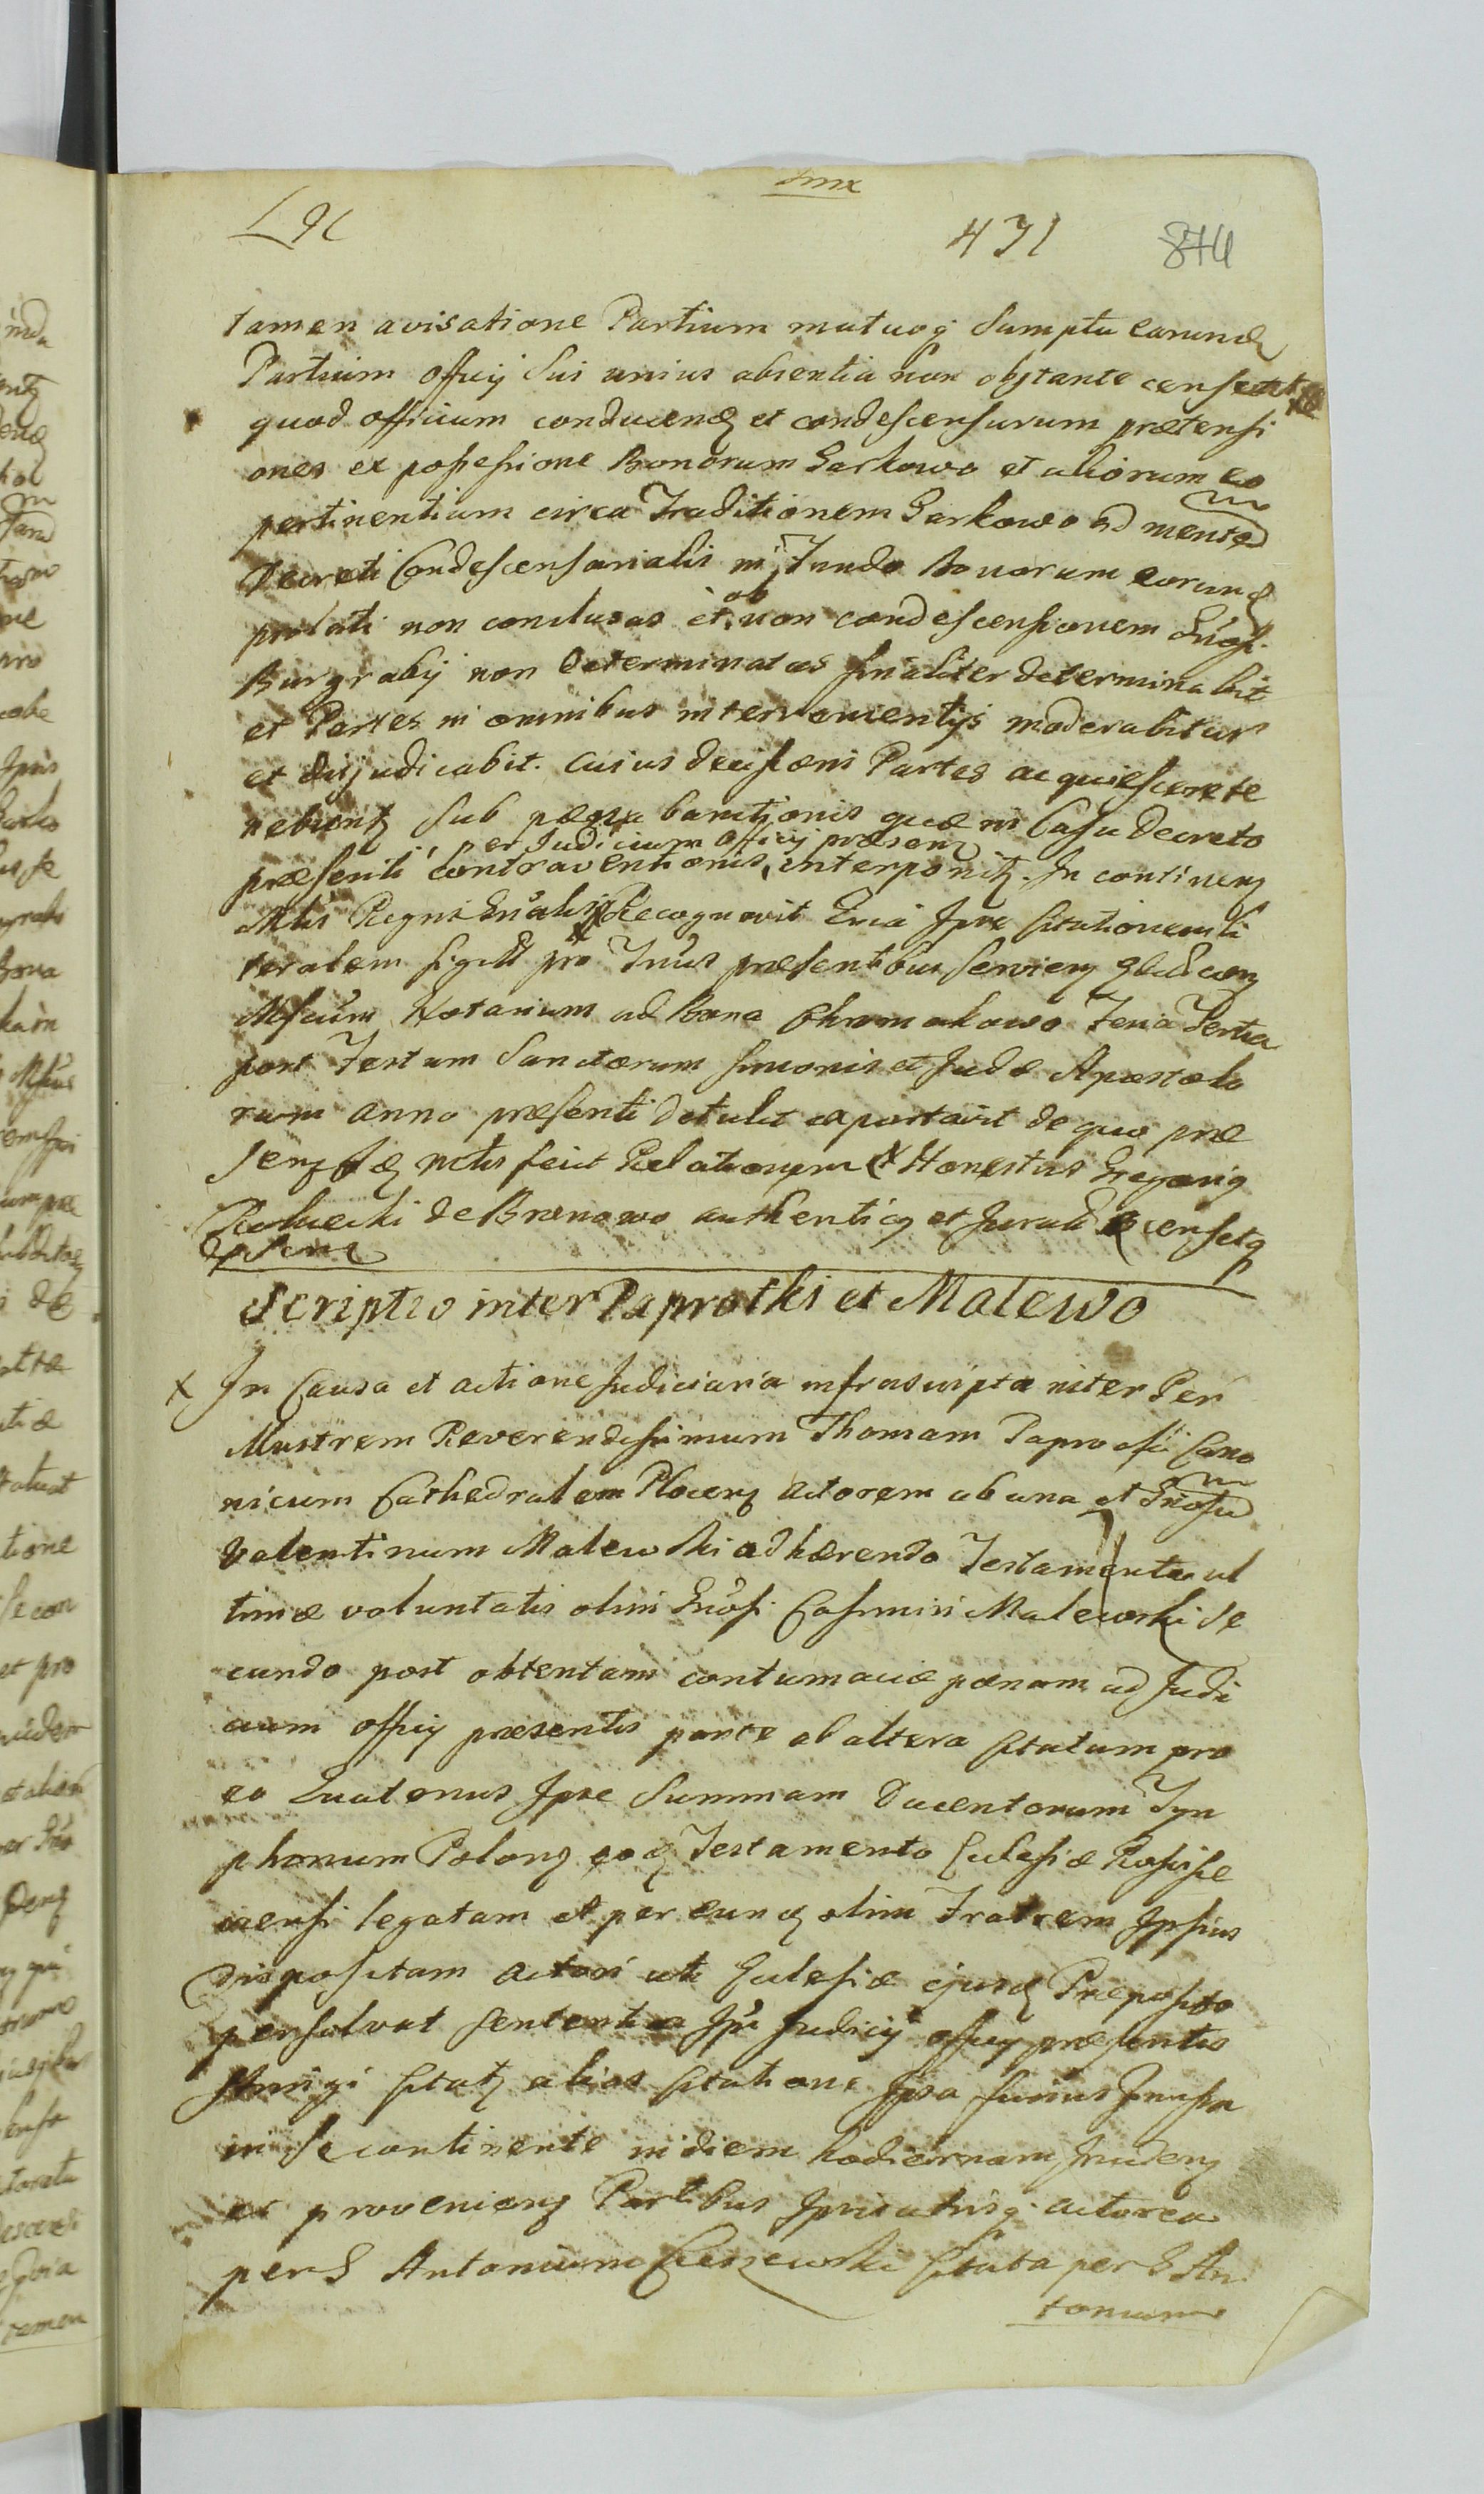 431 874
tamen avisatione Partium mutuoq sumptu earund
Partium officij sui unius absentia non obstante
quod officium conducend et condescensurum prætensi
ones ex possessione Bonorum Sarkowo et aliorum eo
pertinentium circa Traditionem Sarkowo ad mentem
Decreti Condescensorialis in Fundo Bonorum eorund
prolati non conclusas et ob non condescensionem Gnosi
Burgrabij non determinatas finaliter determinabit
et Partes in omnibus intervenientijs moderabitur
et dijudicabit. cuius decisioni Partes acquiescere te
nebuntq sub pæna banitionis quæ in Casu Decreto
et Judicium officij præsen
præsenti contraventionis, interponitq. In continenq
Mtis Regni Gnalis Recognovit Quia Ipse Citationem li
teralem sigill pro Innis præsentibus servienq
Notarium ad Bona Feria Tertia
post Festum Sanctorum Simonis et Judæ Apostolo
rum anno præsenti detulit exportavit de quo præ
senq actis fecit Relationem Honestus Gregoriq
de Bronowo authenticq et Jurad censetq
Scriptio inter Paprotki et Malewo
X In Causa et actione Judiciaria infrascripta inter Per
Illustrem Reverendissimum Thomam Paprocki Cano
nicum Cathedralem Plocenq actorem ab una et Gnosum
Valentinum Malewski adhærendo Testamento ul
timæ voluntatis olim Gnosi Casimiri Malewski se
cundo post obtentam contumaciæ pænam ad Judi
cium officij præsentis parte ab altera citatum pro
eo Quatenus Ipse Summam Ducentorum Tyn
phonum Polonq eoq Testamento Eclesiæ
censi legatam et per eunq olim Fratrem Ipsius
dispositam actori uti Eclesiæ ejusq Præposito
persolvat sententia Ipi Judicij officij præsentis
stringi citatq alias citatione Ipsa
in se continente in diem hodiernam
et provenienq Partibus Ipsis utrisq actorea
per G Antonium Ciszewski citata per G An
tonium